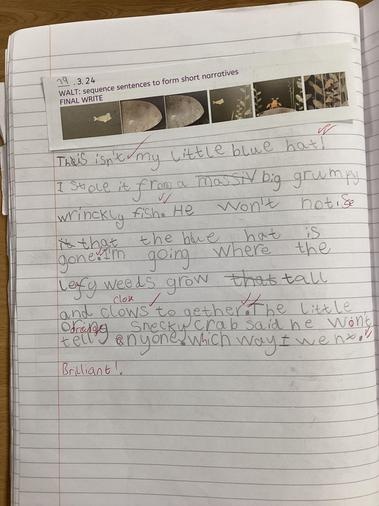 29.3.24
WALT: sequence sentences to form short narratives
FINAL WRITE
This isn't my little blue hat!
I stole it from a massiv big grumpy
wrinckly fish. He won't notise
it that the blue hat is
gone. I'm going where the
lefy weeds grow that tall
clos
and clows to gether. The little
orange
snecky crab said he won't
tell enyone which way I went.
Brilliant!